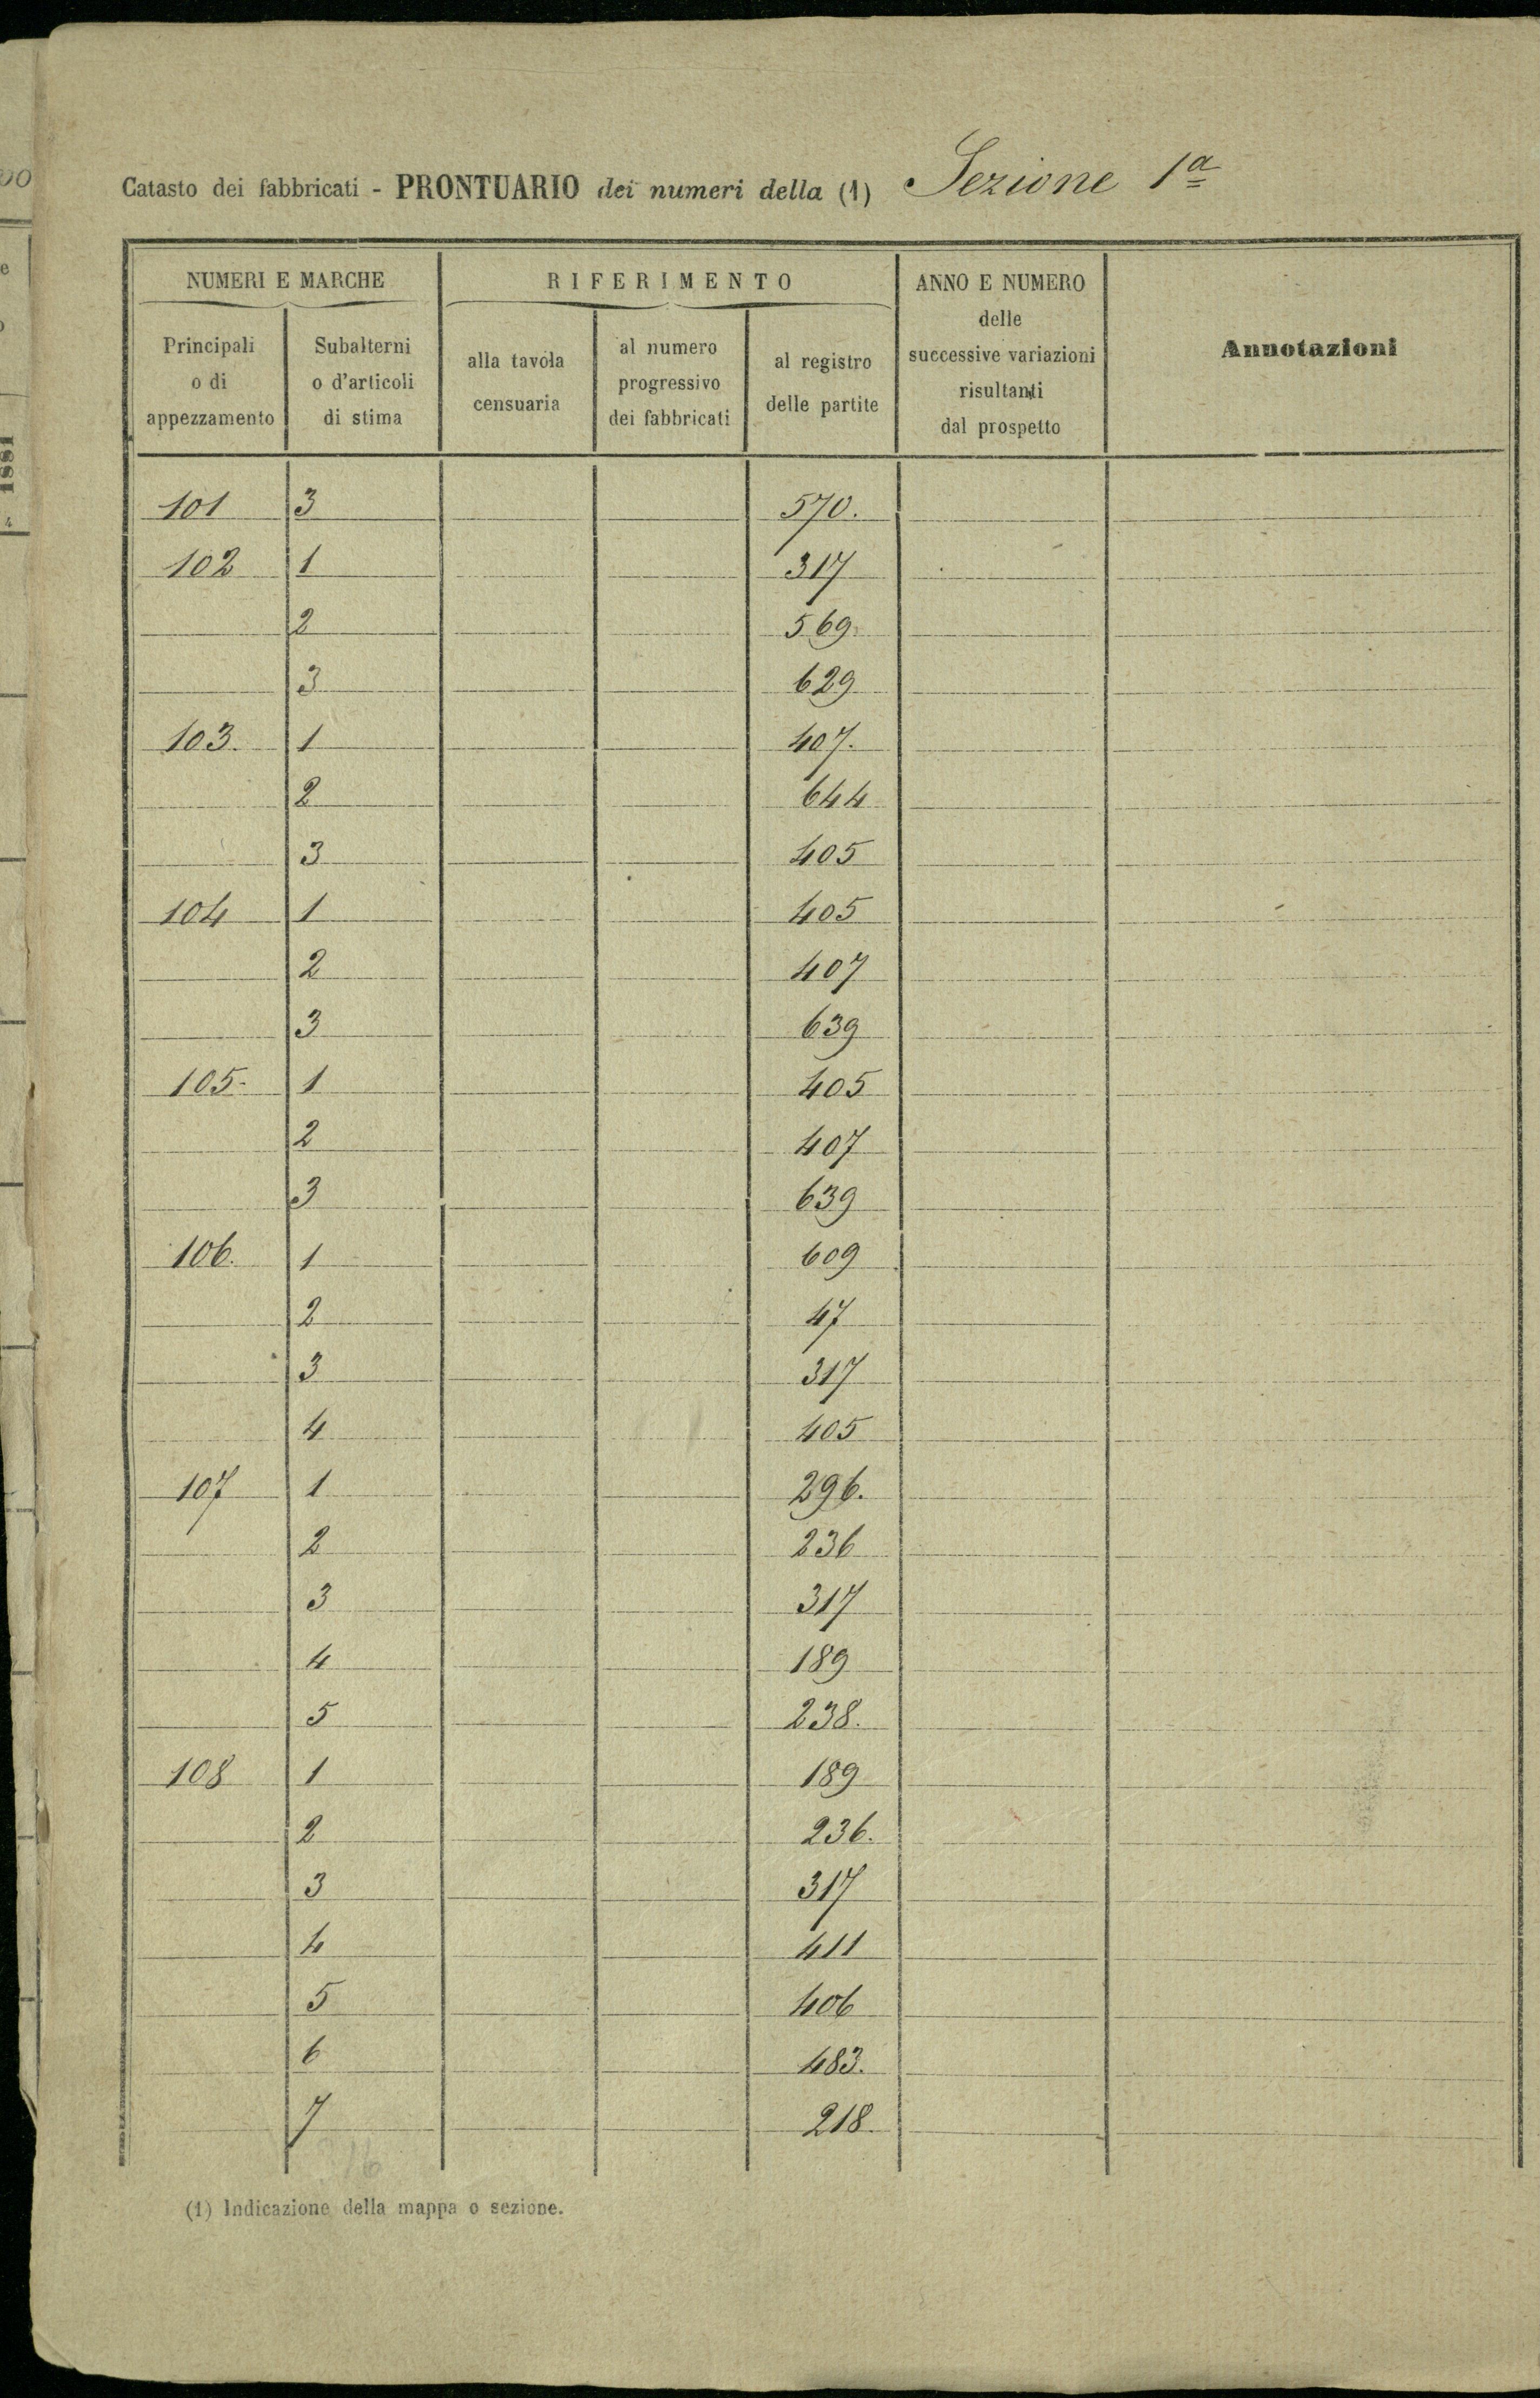 Catasto dei fabbricati - PRONTUARIO dei numeri della (1) Sezione 1ª
NUMERI E MARCHE
Principali
o di
appezzamento
Subalterni
o d'articoli
di stima
RIFERIMENTO
alla tavola
censuaria
al numero
progressivo
dei fabbricati
al registro
delle partite
ANNO E NUMERO
delle
successive variazioni
risultanti
dal prospetto
Annotazioni
101 3 570.
102 1 317
2 569
3 629
103. 1 407.
2 644
3 405
104 1 405
2 407
3 639
105- 1 405
2 407
3 639
106. 1 609
2 47
3 317
4 405
107 1 296.
2 236
3 317
4 189
5 238.
108 1 189
2 236.
3 317
4 411
5 406
6 483.
7 218
(1) Indicazione della mappa o sezione.
1881